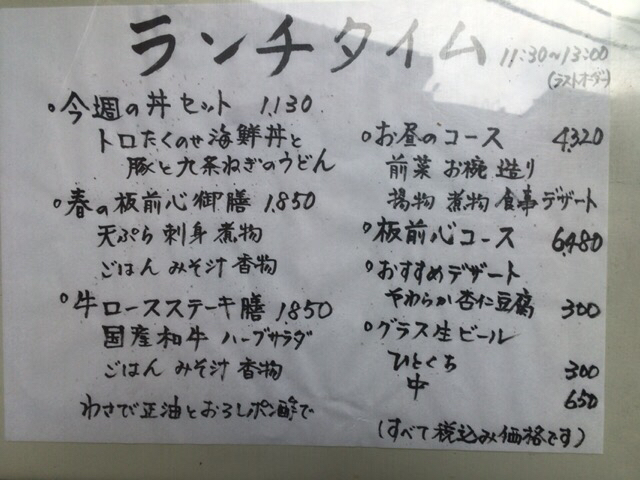 ランチタイム 11:30~13:00
(ラストオーダー)
○今週の丼セット 1,130
トロたくのせ海鮮丼と
豚と九条ねぎのうどん
○春の板前心御膳 1,850
天ぷら 刺身 煮物
ごはん みそ汁 香物
○牛ロースステーキ膳 1,850
国産和牛 ハーブサラダ
ごはん みそ汁 香物
わさび正油とおろしポン酢で
○お昼のコース 4,320
前菜 お椀 造り
揚物 煮物 食事 デザート
○板前心コース 6,480
○おすすめデザート
やわらか杏仁豆腐 300
○グラス生ビール
ひとくち 300
中 650
(すべて税込み価格です)